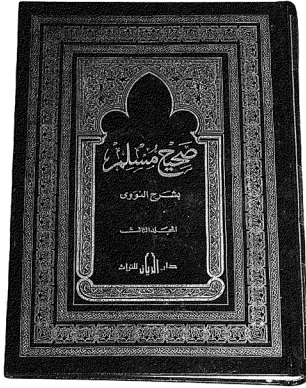 صحيح مسلم
بشرح النووى
المجلد الثالث
دار الريان للتراث